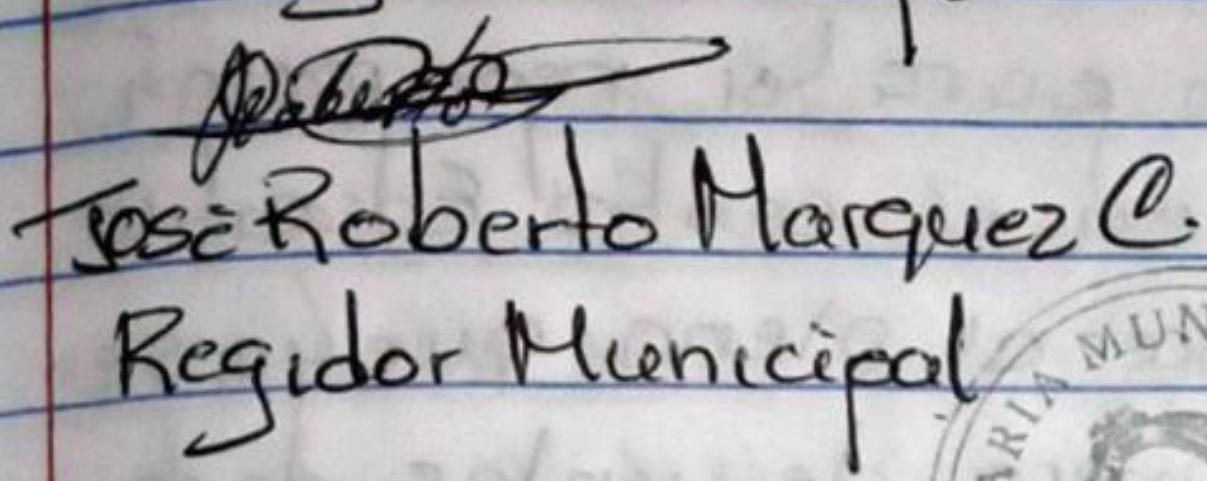 José Roberto Marquez C.
Regidor Municipal
ARIA MUN